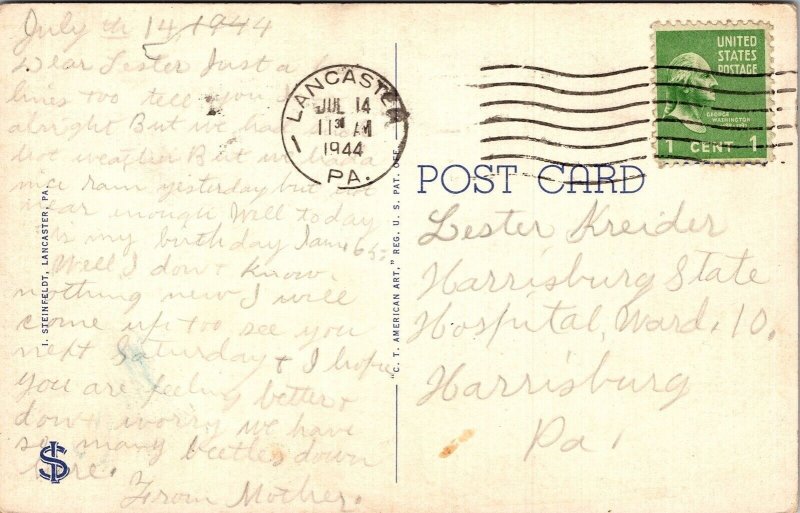 July th 14, 1944
Dear Lester Just a
lines too tell you I
alright But we had
hot weather But we had a
nice rain yesterday but not
near enough Well today
is my birthday I am 65.
Well I dont know
nothing new I will
come up too see you
next Saturday + I hope
you are feeling better +
dont worry we have
so many beetles down
here.
From Mother.
I. STEINFELDT, LANCASTER, PA.
LANCASTER
JUL 14
11 AM
1944
PA.
"C. T. AMERICAN ART," REG. U. S. PAT. OFF.
UNITED
STATES
POSTAGE
GEORGE
WASHINGTON
1 CENT 1
POST CARD
Lester Kreider
Harrisburg State
Hospital, Ward. 10.
Harrisburg
Pa.